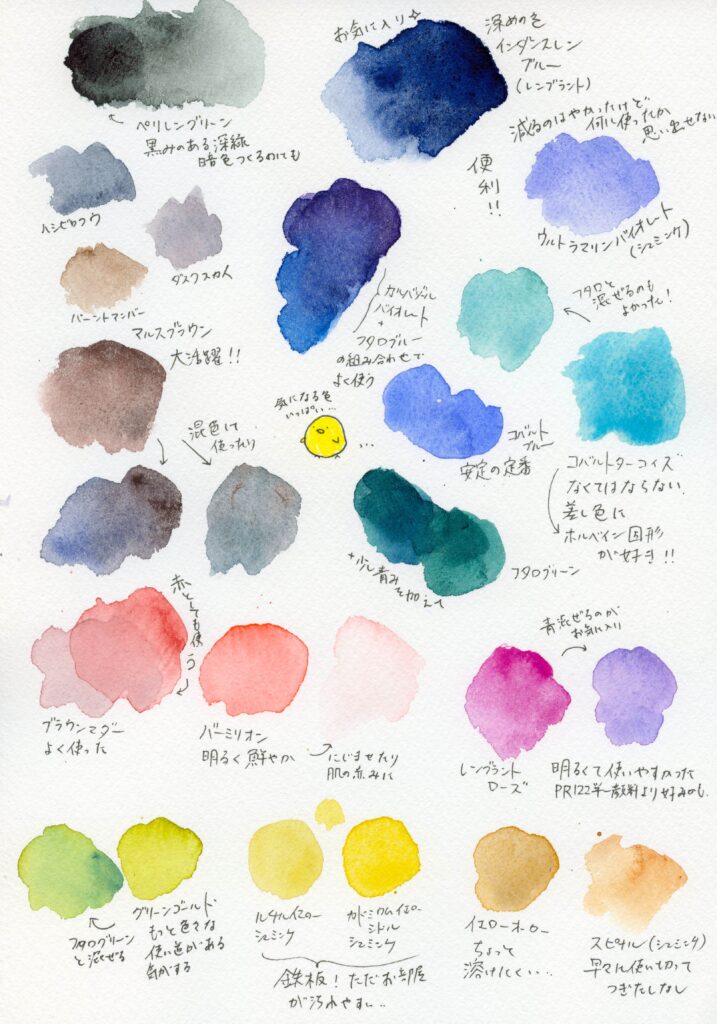 ペリレングリーン
黒みのある深緑
暗色つくるのにも
お気に入り
深めの色
インダンスレン
ブルー
(レンブラント)
減るのはやかったけど
何に使ったか
思い出せない
便利!!
ウルトラマリンバイオレット
(シュミンケ)
ハシビロコウ
ダスクスカイ
バーントアンバー
カルバゾール
バイオレット
+
フタロブルー
の組み合わせで
よく使う
フタロと
混ぜるのも
よかった!
マルスブラウン
大活躍!!
混色にて
使ったり
気になる色
いっぱい…
…
コバルト
ブルー
安定の定番
コバルトターコイズ
なくてはならない
差し色に
ホルベイン固形
が好き!!
+少し青み
を加えて
フタログリーン
赤としても使う
ブラウンマダー
よく使った
バーミリオン
明るく鮮やか
にじませたり
肌の赤みに
青混ぜるのが
お気に入り
レンブラント
ローズ
明るくて使いやすかった
PR122単一顔料より好みかも
フタログリーン
と混ぜる
グリーンゴールド
もっと色々な
使い道がある
気がする
ルチルイエロー
シュミンケ
カドミウムイエロー
ミドル
シュミンケ
鉄板!ただお部屋
が汚れやすい…
イエローオーカー
ちょっと
溶けにくい…
スピネル(シュミンケ)
早々に使い切って
つぎたしなし